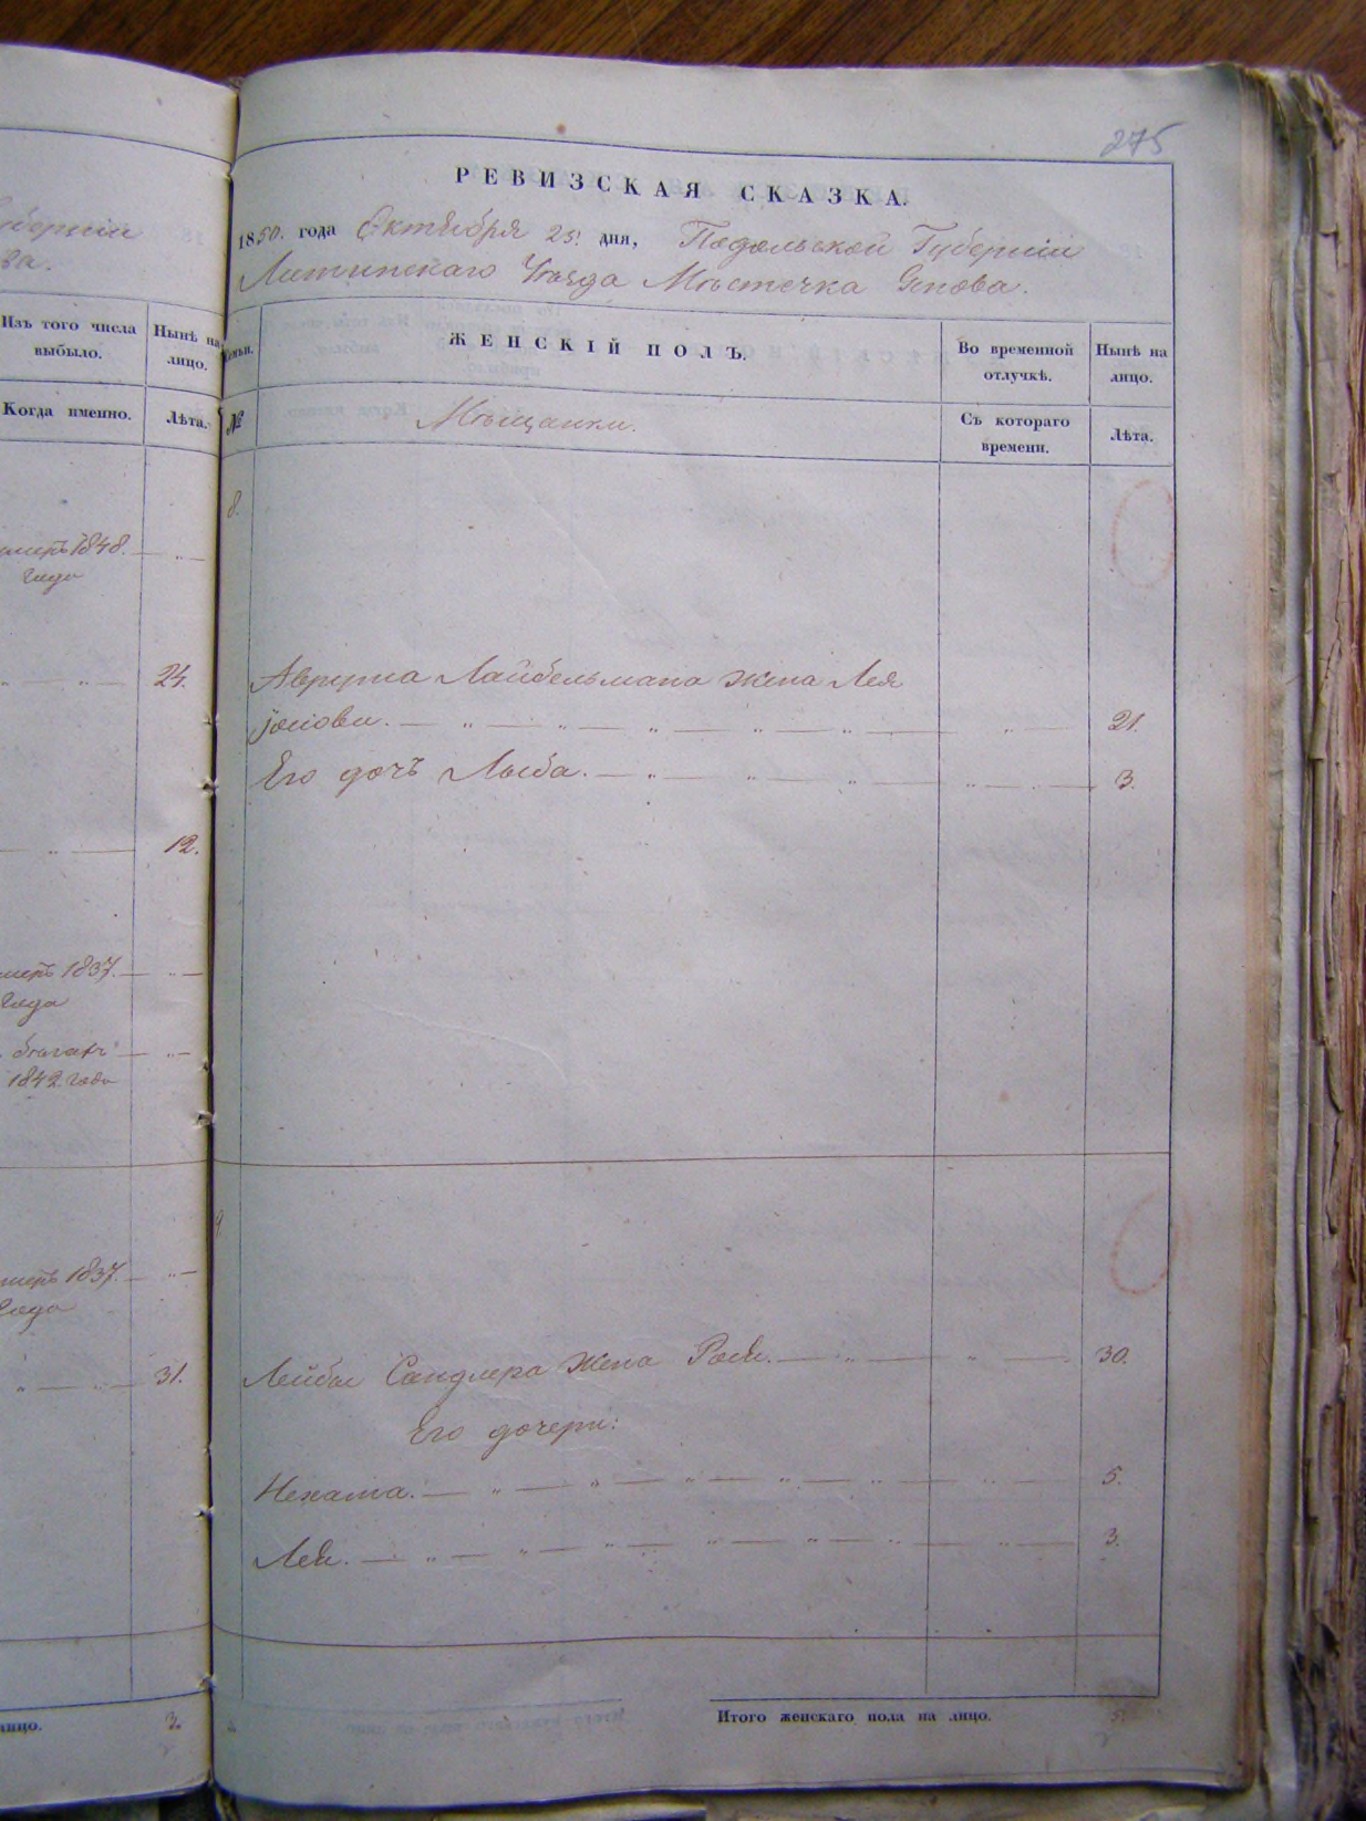 275
РЕВИЗСКАЯ СКАЗКА.
1850. года Октября 25. дня, Подольской Губерніи
Литинскаго Уѣзда Мѣстечка Янова.
Губерніи
ва.
Изъ того числа выбыло.
Нынѣ на лицо.
Когда именно.
Лѣта.
умеръ 1848.
года
24.
12.
умеръ 1837.
года
бѣгахъ
1842 года
умеръ 1837.
года
31.
лицо.
3.
Семьи.
ЖЕНСКІЙ ПОЛЪ.
Во временной отлучкѣ.
Нынѣ на лицо.
№
Мѣщанки.
Съ котораго времени.
Лѣта.
8.
Аврума Лайбельмана жена Лея
21.
Его дочь 3.
9
Лейбы Сандлера жена 30.
Его дочери:
Нехама. 5.
Лея. 3.
Итого женскаго пола на лицо.
5.